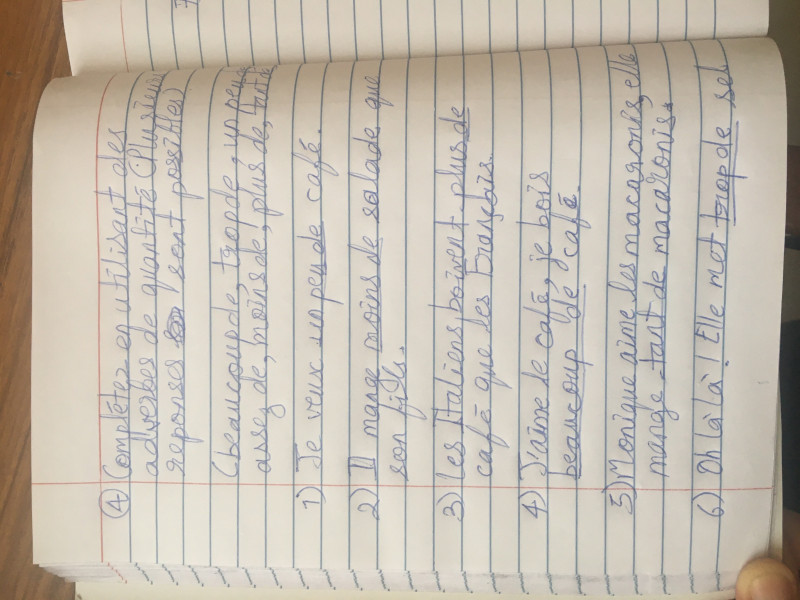 ④ Complétez en utilisant des
adverbes de quantité (Plusieurs
réponses sont possibles)
(beaucoup de, trop de, un peu de,
assez de, moins de, plus de, tant de
1) Je veux un peu de café.
2) Il mange moins de salade que
son fils.
3) Les Italiens boivent plus de
café que les Français.
4) J'aime le café, je bois
beaucoup de café.
5) Monique aime les macaronis, elle
mange tant de macaronis.
6) Oh là là! Elle met trop de sel